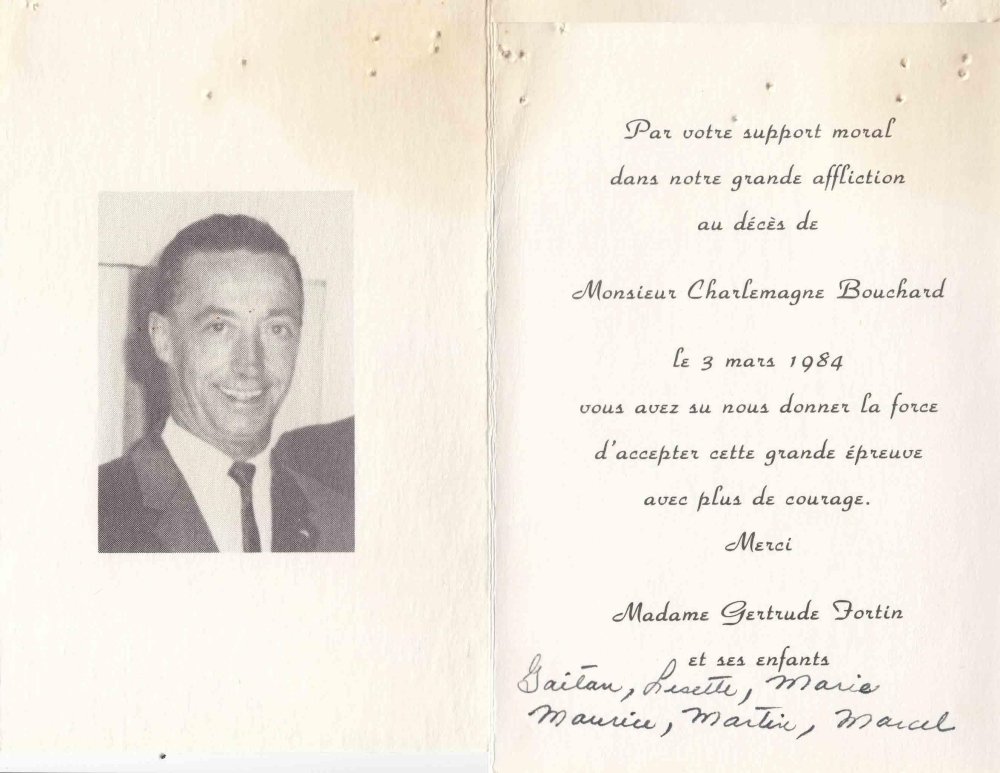 Par votre support moral
dans notre grande affliction
au décès de
Monsieur Charlemagne Bouchard
le 3 mars 1984
vous avez su nous donner la force
d'accepter cette grande épreuve
avec plus de courage.
Merci
Madame Gertrude Fortin
et ses enfants
Gaitan, Lisette, Marie
Maurice, Martin, Marcel